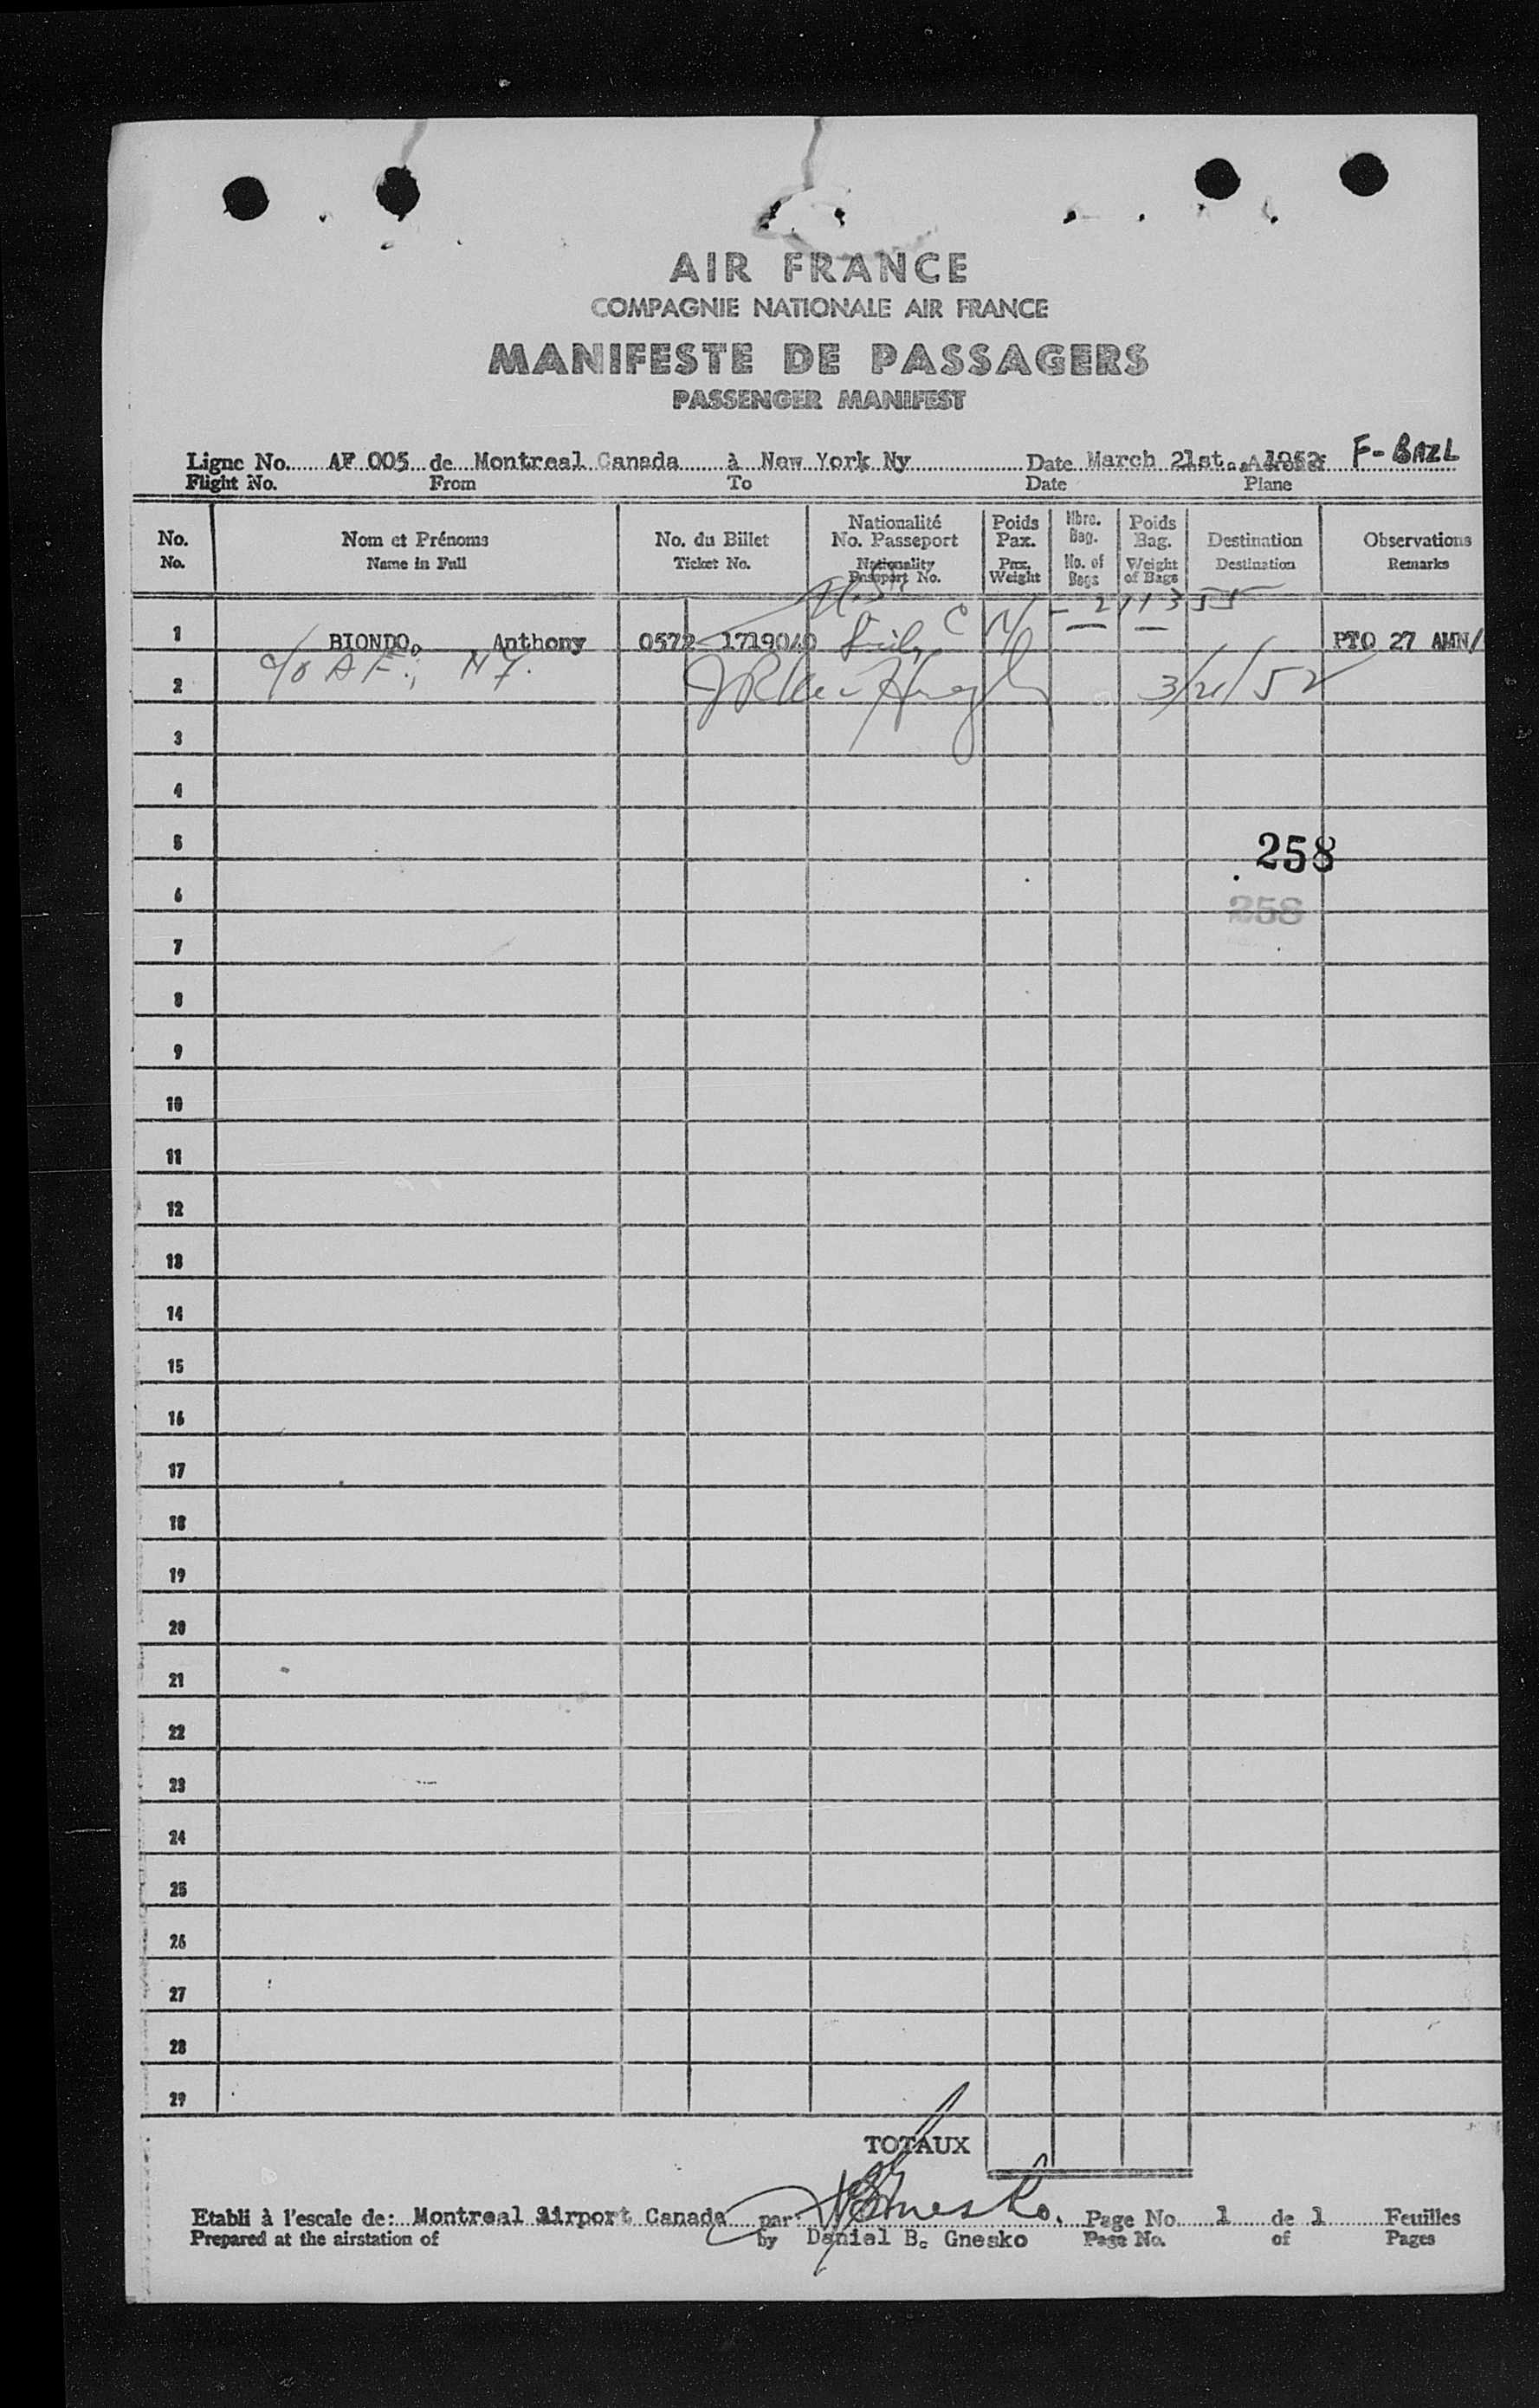 AIR FRANCE
COMPAGNIE NATIONALE AIR FRANCE
MANIFESTE DE PASSAGERS
PASSENGER MANIFEST
Ligne No. AF 005 de Montreal Canada à New York Ny Date March 21st. 1952 F-BAZL
Flight No. From To Date Plane
No. Nom et Prénoms No. du Billet Nationalité No. Passeport Poids Pax. Nbre. Bag. Poids Bag. Destination Observations
No. Name in Full Ticket No. Nationality Passport No. Pax. Weight No. of Bags Weight of Bags Destination Remarks
1 BIONDO, Anthony 0572 1719040 PTO 27 AMN/
c/o A F., N Y. 3/21/52
2
3
4
5
258
6
258
7
8
9
10
11
12
13
14
15
16
17
18
19
20
21
22
23
24
25
26
27
28
29
TOTAUX
Etabli à l'escale de: Montreal Airport Canada par Page No. 1 de 1 Feuilles
Prepared at the airstation of by Daniel B. Gnesko Page No. of Pages